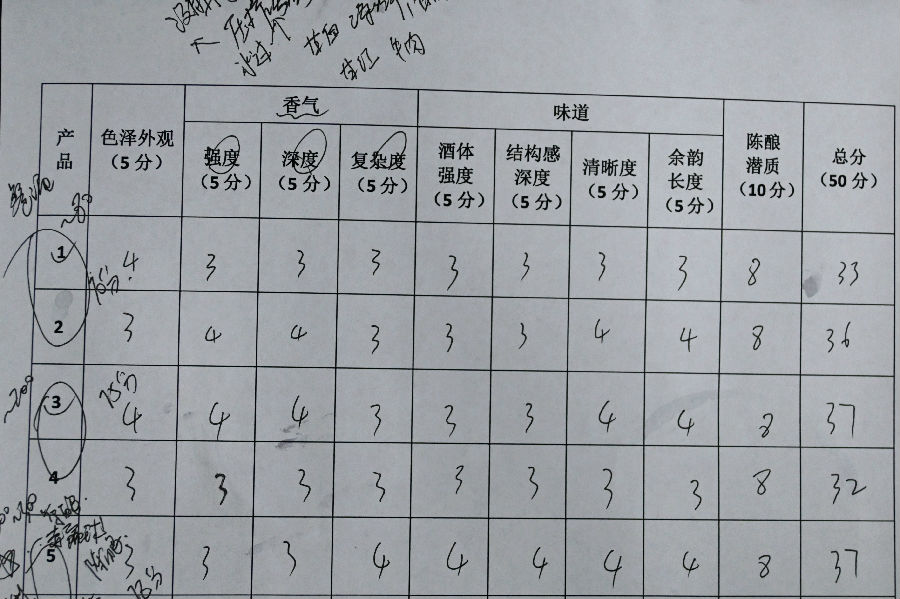 牛肉
产品 色泽外观（5分） 香气 味道 陈酿潜质（10分） 总分（50分）
强度（5分） 深度（5分） 复杂度（5分） 酒体强度（5分） 结构感深度（5分） 清晰度（5分） 余韵长度（5分）
1 4 3 3 3 3 3 3 3 8 33
2 3 4 4 3 3 3 4 4 8 36
75分
3 4 4 4 3 3 3 4 4 8 37
4 3 3 3 3 3 3 3 3 8 32
5 3 3 3 4 4 4 4 4 8 37
78分